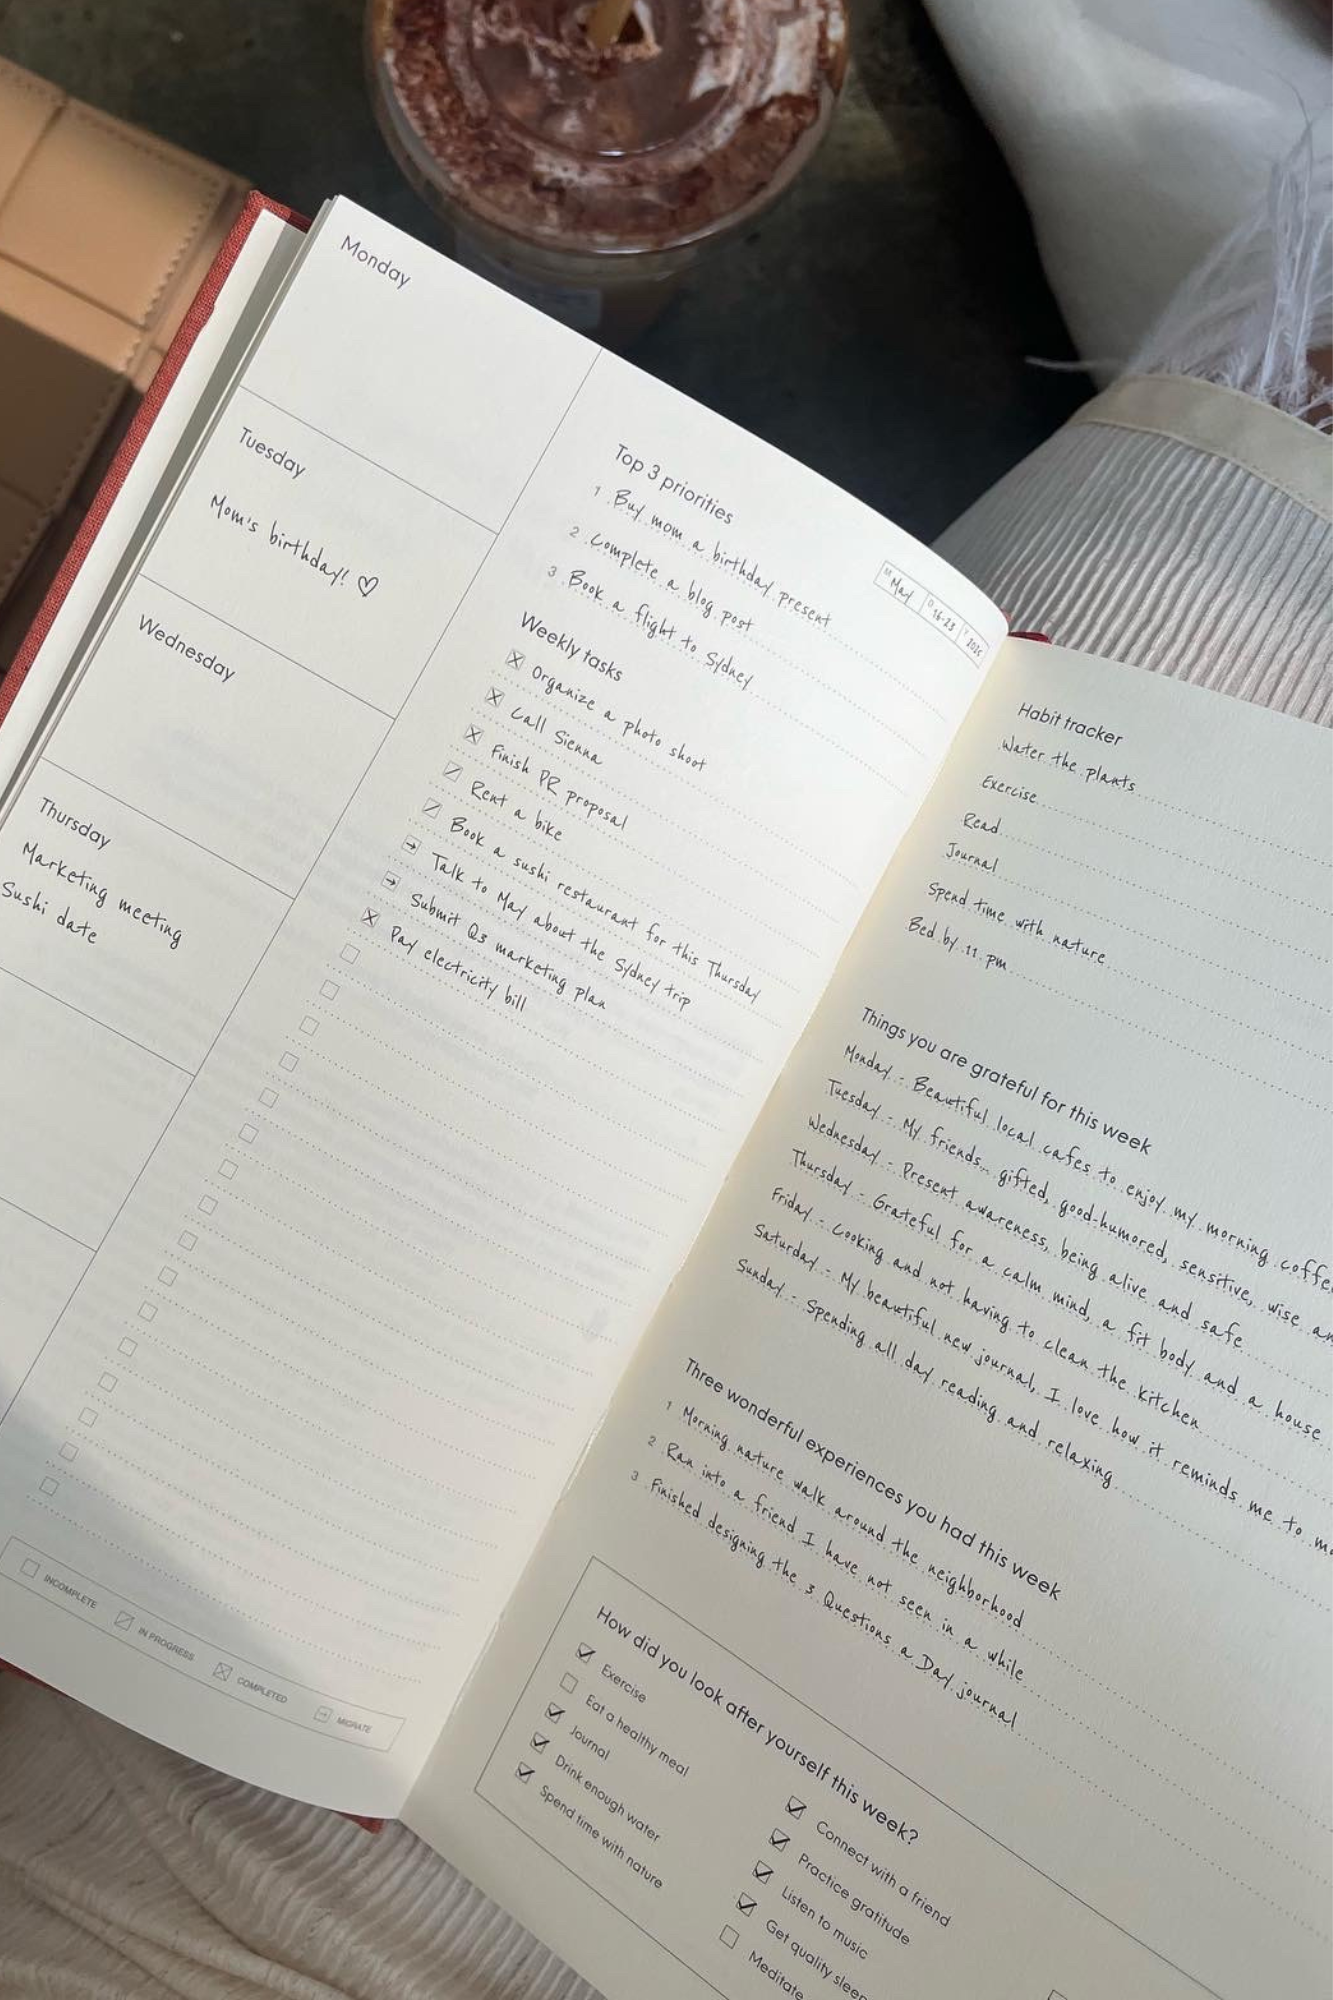 Monday
Tuesday
Mom's birthday! ♡
Wednesday
Thursday
Marketing meeting
Sushi date
M May D 16-23 Y 2025
Top 3 priorities
1 Buy mom a birthday present
2 Complete a blog post
3 Book a flight to Sydney
Weekly tasks
☒ Organize a photo shoot
☒ Call Sienna
☒ Finish PR proposal
⧄ Rent a bike
⧄ Book a sushi restaurant for this Thursday
→ Talk to May about the Sydney trip
→ Submit Q3 marketing plan
☒ Pay electricity bill
☐ INCOMPLETE ⧄ IN PROGRESS ☒ COMPLETED → MIGRATE
Habit tracker
Water the plants
Exercise
Read
Journal
Spend time with nature
Bed by 11 pm
Things you are grateful for this week
Monday - Beautiful local cafes to enjoy my morning coffee
Tuesday - My friends, gifted, good-humored, sensitive, wise
Wednesday - Present awareness, being alive and safe
Thursday - Grateful for a calm mind, a fit body and a house
Friday - Cooking and not having to clean the kitchen
Saturday - My beautiful new journal, I love how it reminds me to
Sunday - Spending all day reading and relaxing
Three wonderful experiences you had this week
1 Morning nature walk around the neighborhood
2 Ran into a friend I have not seen in a while
3 Finished designing the 3 Questions a Day journal
How did you look after yourself this week?
☑ Exercise
☐ Eat a healthy meal
☑ Journal
☑ Drink enough water
☑ Spend time with nature
☑ Connect with a friend
☑ Practice gratitude
☑ Listen to music
☑ Get quality sleep
☐ Meditate